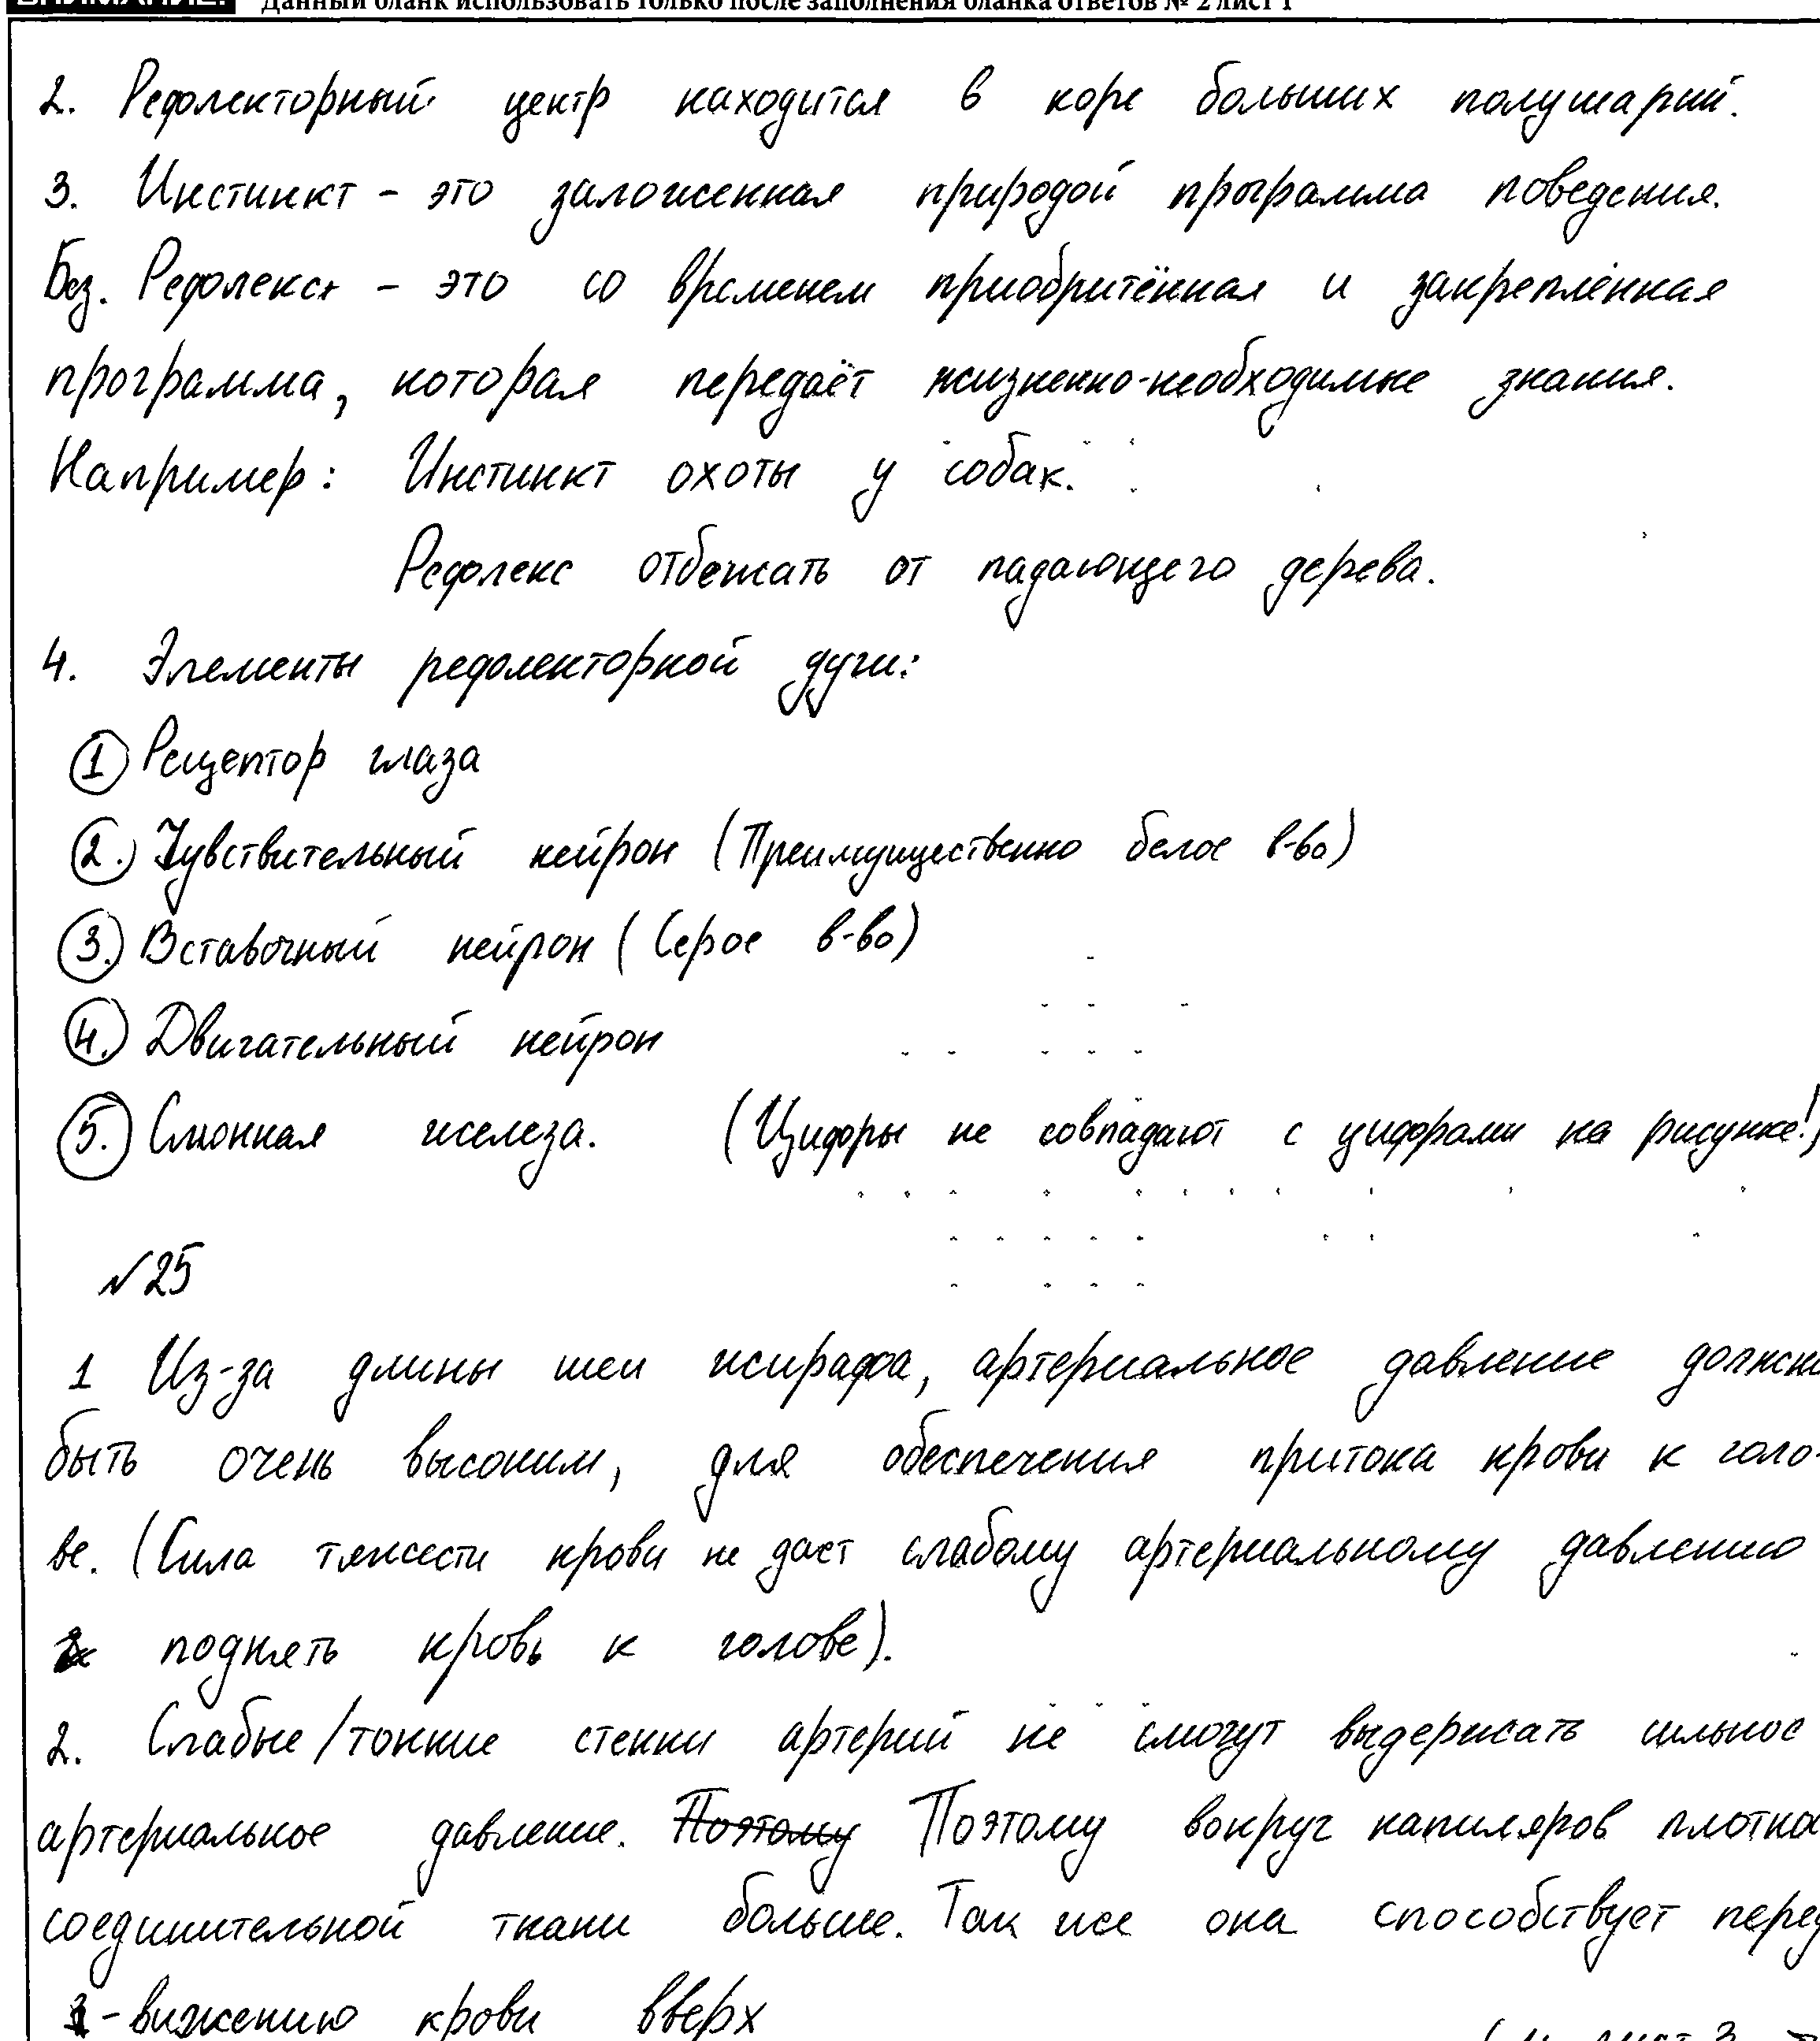 ВНИМАНИЕ! Данный бланк использовать только после заполнения бланка ответов № 2 лист 1
2. Рефлекторный центр находится в коре больших полушарий.
3. Инстинкт - это заложенная природой программа поведения.
Без. Рефлекс - это со временем приобритённая и закреплённая
программа, которая передаёт жизненно-необходимые знания.
Например: Инстинкт охоты у собак.
Рефлекс отбежать от падающего дерева.
4. Элементы рефлекторной дуги:
1 Рецептор глаза
2. Чувствительный нейрон (Преимущественно белое в-во)
3. Вставочный нейрон (Серое в-во)
4. Двигательный нейрон
5. Слюнная железа. (Цифры не совпадают с цифрами на рисунке!)
№25
1 Из-за длины шеи жирафа, артериальное давление должно
быть очень высоким, для обеспечения притока крови к голо-
ве. (Сила тяжести крови не дает слабому артериальному давлению
поднять кровь к голове).
2. Слабые/тонкие стенки артерий не смогут выдержать сильное
артериальное давление. Поэтому Поэтому вокруг капиляров плотно
соединительной ткани больше. Так же она способствует перед
-вижению крови вверх
лист 3